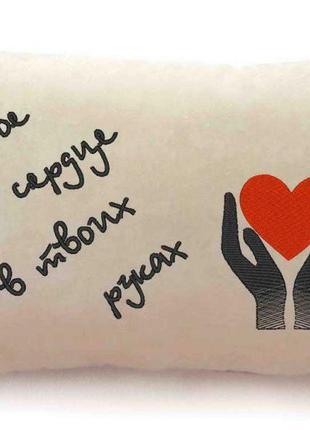 ое
сердце
в твоих
руках